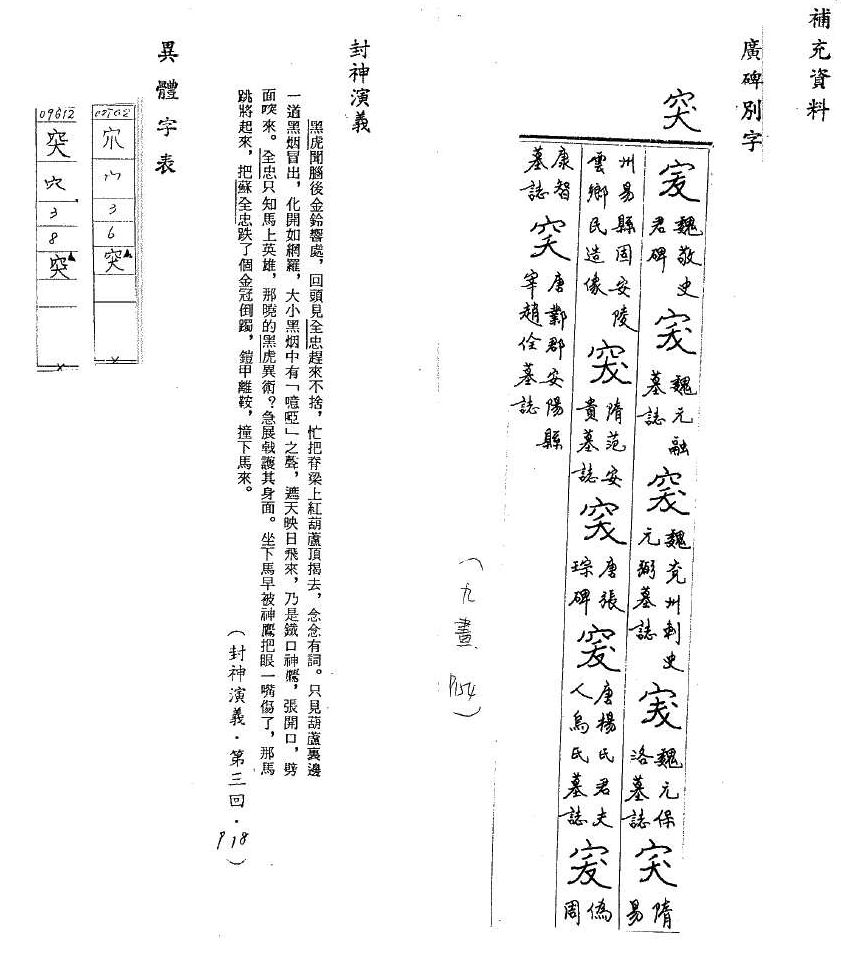 補充資料
廣碑別字
突
突 魏敬史君碑 突 魏元融墓誌 突 魏兗州刺史元弼墓誌 突 魏元保洛墓誌 突 隋易
州易縣固安陵雲鄉民造像 突 隋范安貴墓誌 突 唐張琮碑 突 唐楊氏君夫人烏氏墓誌 突 僞周
康智墓誌 突 唐鄴郡安陽縣宰趙佺墓誌
(九畫 P154)
封神演義
黑虎聞腦後金鈴響處，回頭見全忠趕來不捨，忙把脊梁上紅葫蘆頂揭去，念念有詞。只見葫蘆裏邊
一道黑烟冒出，化開如網羅，大小黑烟中有「噫啞」之聲，遮天映日飛來，乃是鐵口神鷹，張開口，劈
面突來。全忠只知馬上英雄，那曉的黑虎異術？急展戟護其身面。坐下馬早被神鷹把眼一嘴傷了，那馬
跳將起來，把蘇全忠跌了個金冠倒躅，鎧甲離鞍，撞下馬來。
(封神演義．第三回．P18)
異體字表
宂 宀 3 6 突
09612 突 穴 3 8 突